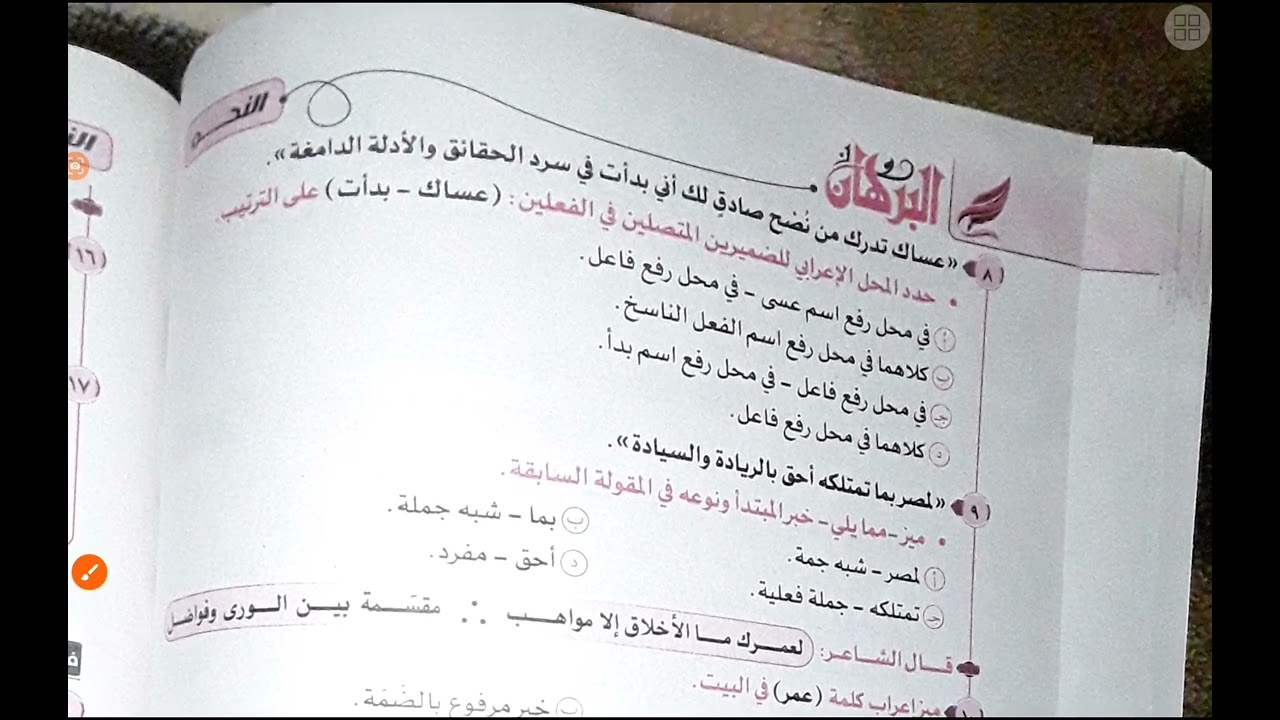 النحـــو
البرهان
٨ «عساك تدرك من نُصْح صادقٍ لك أني بدأت في سرد الحقائق والأدلة الدامغة».
• حدد المحل الإعرابي للضميرين المتصلين في الفعلين: (عساك - بدأت) على الترتيب.
أ في محل رفع اسم عسى - في محل رفع فاعل.
ب كلاهما في محل رفع اسم الفعل الناسخ.
جـ في محل رفع فاعل - في محل رفع اسم بدأ.
د كلاهما في محل رفع فاعل.
٩ «لمصر بما تمتلكه أحق بالريادة والسيادة».
• ميز - مما يلي - خبر المبتدأ ونوعه في المقولة السابقة.
أ لمصر - شبه جمة.
ب بما - شبه جملة.
جـ تمتلكه - جملة فعلية.
د أحق - مفرد.
قــال الشاعـر: لعمـرك مـا الأخلاق إلا مواهـب ∴ مقسَــمة بيـن الـورى وفواضل
ميز إعراب كلمة (عمر) في البيت.
ب خبر مرفوع بالضَمَة.
١٦
١٧